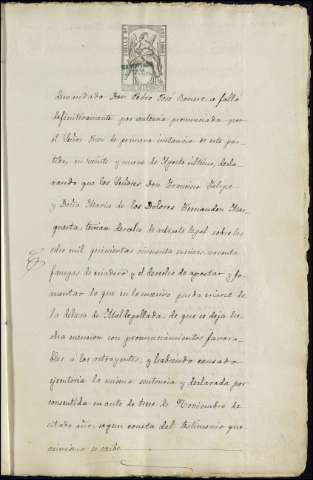 demandada Don Pedro José Bonere se falló
definitivamente por sentencia pronunciada por
el Señor Juez de primera instancia de este par-
tido, en veinte y nueve de Agosto último, decla-
rando que los Señores Don Francisco Felipe
y Doña María de los Dolores Hernandez
tenían derecho de retracto legal sobre los
ocho mil quinientas cincuenta
fanegas de y el derecho de apostar y fo-
mentar lo que en lo sucesivo pueda criarse
la dehesa de Maldepollada, de que se deja he-
cha mencion con pronunciamientos favora-
bles á los retrayentes; y habiendo causado
ejecutoria la misma sentencia y declarada por
consentida en auto de trece de Noviembre de
citado año, segun consta del testimonio que
asimismo se exibe.